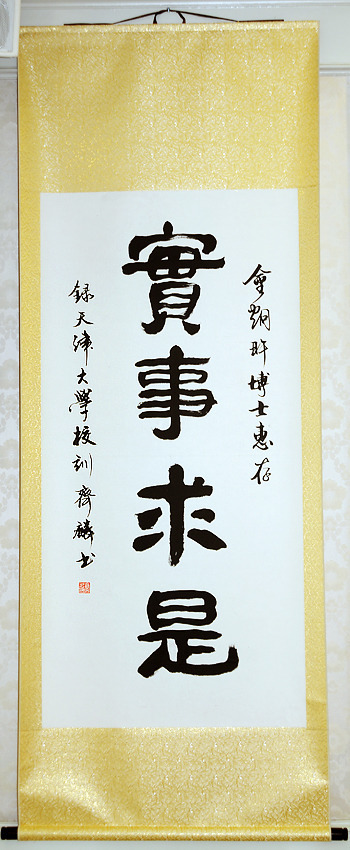 金 博士惠存
實事求是
録天津大學校訓 齊麟书